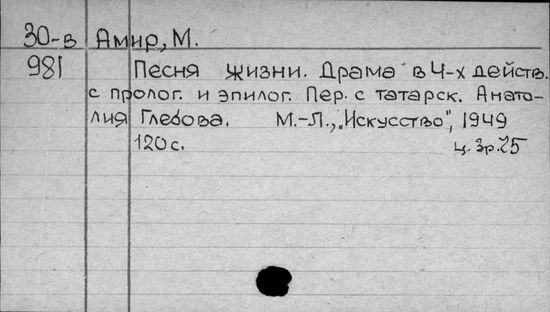 30-в Амир, М.
981 Песня жизни. Драма в 4-х действ.
с пролог. и эпилог. Пер. с татарск. Анато-
лия Глебова. М.-Л., „Искусство", 1949
120 с. ц. 3р.25